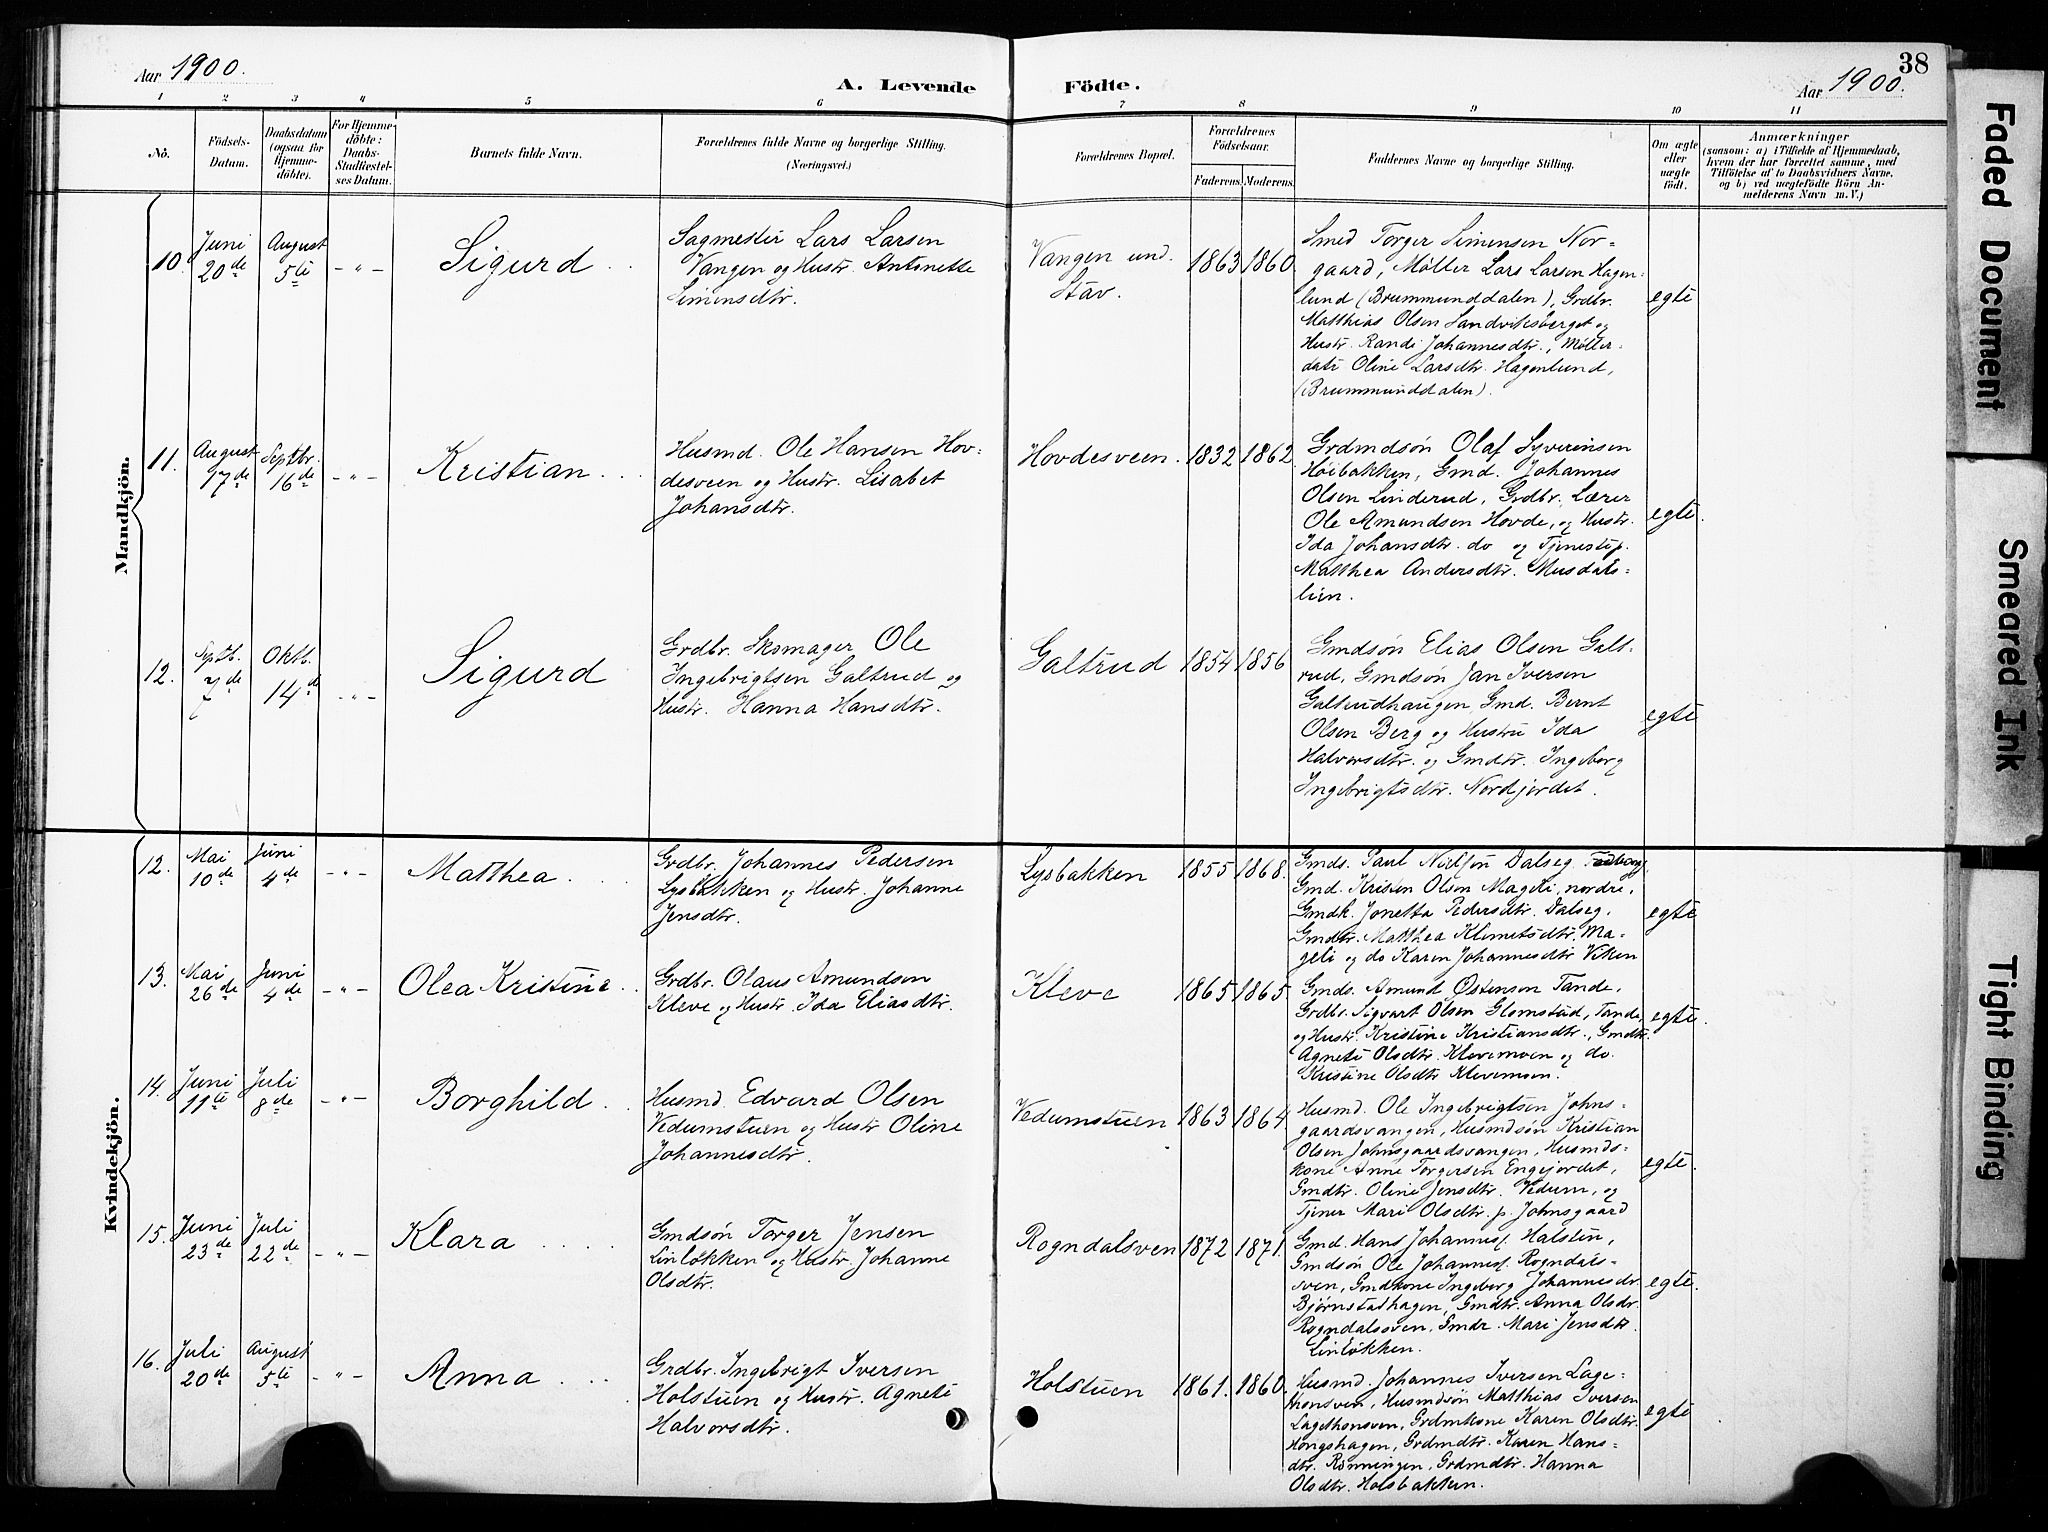 38
Aar 1900.
A. Levende Födte.
Aar 1900.
1 2 3 4 5 6 7 8 9 10 11
No.
Födsels-
Datum.
Daabsdatum
(ogsaa for
Hjemme-
döbte).
For Hjemme-
döbte:
Daabs-
Stadfæstel-
ses Datum.
Barnets fulde Navn.
Forældrenes fulde Navne og borgerlige Stilling.
(Næringsvei.)
Forældrenes Bopæl.
Forældrenes
Födselsaar.
Faderens. Moderens.
Faddernes Navne og borgerlige Stilling.
Om ægte
eller
uægte
födt.
Anmærkninger
(saasom: a) i Tilfælde af Hjemmedaab,
hvem der har forrettet samme, med
Tilföielse af to Daabsvidners Navne,
og b) ved uægtefödte Börn An-
melderens Navn m. V.)
Mandkjön.
10. Juni
20de
August
5te
- " -
Sigurd
Sagmester Lars Larsen
Vangen og Hustr. Antonette
Simensdtr.
Vangen und.
Stav.
1863 1860.
Smed Torger Simensen Nor-
gaard, Møller Lars Larsen Hagen-
lund (Brummunddalen), Grdbr.
Matthias Olsen Sandviksberget og
Hustr. Randi Johannesdtr., Møller-
datr Oline Larsdtr. Hagenlund,
(Brummunddalen).
egte
11. August
17de
Septbr.
16de
- " -
Kristian
Husmd. Ole Hansen Hov-
desveen og Hustr. Lisabet
Johansdtr.
Hovdesveen. 1832 1862.
Grdmdsøn Olaf Syverinsen
Høibakken, Gmd. Johannes
Olsen Linderud, Grdbr. Lærer
Ole Amundsen Hovde, og Hustr.
Ida Johansdtr. do og Tjenestep.
Matthea Andersdtr. Musdals-
lien.
egte.
12. Septb.
7de
Oktb.
14de
- " -
Sigurd
Grdbr. Skomager Ole
Ingebrigtsen Galtrud og
Hustr. Hanna Hansdtr.
Galtrud 1854 1856
Gmdsøn Elias Olsen Galt-
rud, Gmdsøn Jan Iversen
Galtrudhaugen, Gmd. Bernt
Olsen Berg og Hustru Ida
Halvorsdtr. og Gmdtr. Ingeborg
Ingebrigtsdtr. Nordjordet.
egte
Kvindekjön.
12. Mai
10de
Juni
4de
- " -
Matthea
Grdbr. Johannes Pedersen
Lysbakken og Hustr. Johanne
Jensdtr.
Lysbakken 1855 1868.
Gmds. Paul Nielsøn Dalseg,
Gmd. Kristen Olsen Mageli, nordre,
Gmdk. Jonetta Pedersdtr. Dalseg,
Gmdtr. Matthea Klemetsdtr. Ma-
geli og do Karen Johannesdtr Viken
egte
13. Mai
26de
Juni
4de
- " -
Olea Kristine
Grdbr. Olaus Amundsen
Kleve og Hustr. Ida Eliasdtr.
Kleve 1865 1865.
Gmds. Amund Østensen Tande,
Grdbr. Sigvart Olsen Glomstad, Tande,
og Hustr. Kristine Kristiansdtr., Gmdtr.
Agnete Olsdtr. Klevemoen og do.
Kristine Olsdtr Klevemoen.
egte.
14. Juni
11te
Juli
8de
- " -
Borghild
Husmd. Edvard Olsen
Vedumstuen og Hustr Oline
Johannesdtr.
Vedumstuen 1863 1864.
Husmd. Ole Ingebrigtsen Johns-
gaardsvangen, Husmdsøn Kristian
Olsen Johnsgaardsvangen, Husmds-
kone Anne Torgersen Engejordet,
Gmdtr. Oline Jensdtr. Vedum, og
Tjener Mari Olsdtr. p. Johnsgaard
egte.
15. Juni
23de
Juli
22de
- " -
Klara
Gmdsøn Torger Jensen
Linløkken og Hustr. Johanne
Olsdtr.
Rogndalsven 1872 1871.
Gmd. Hans Johannes. Halstein,
Gmdsøn Ole Johannes. Rogndals-
sven, Gmdkone Ingeborg Johannesdr.
Bjørnstadhagen, Gmdtr. Anna Olsdr.
Rogndalssven, Gmdr. Mari Jensdtr.
Linløkken.
egte.
16. Juli
20de
August
5te
- " -
Anna
Grdbr. Ingebrigt Iversen
Holstuen og Hustr. Agnete
Halvorsdtr.
Holstuen 1861. 1860.
Husmd. Johannes Iversen Lage-
thonsven, Husmdsøn Matthias Iversen
Lagethonsven, Grdmkone Karen Olsdtr.
Hongshagen, Grdmdtr. Karen Hans-
dtr. Rønningen, Grdmdtr. Hanna
Olsdtr. Holsbakken.
egte
Faded Document
Smeared Ink
Tight Binding